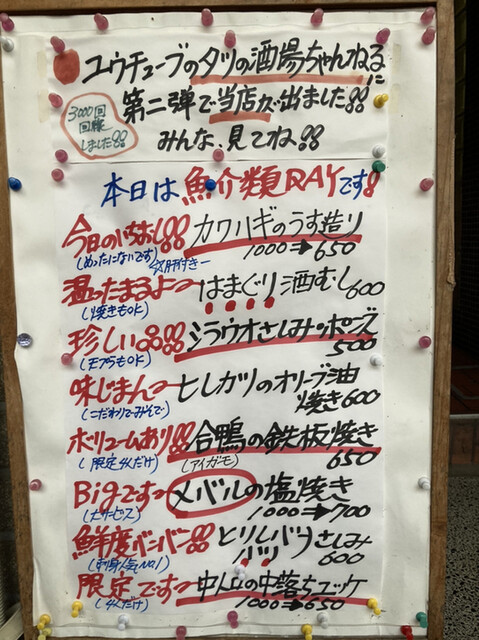 ユウチューブのタツの酒場ちゃんねるに
第二弾で当店が出ました!!
3000回
回転
しました!!
みんな、見てね!!
本日は魚介類DAYです!
今日のいちおし!! カワハギのうす造り
(めったにないです) 肝付き 1000➡650
温ったまるよ〜 はまぐり酒むし600
(焼きもOK)
珍しい品!! シラウオさしみorポン酢
(天プラもOK) 500
味じまん〜 ヒレカツのオリーブ油
(こだわりでみんで) 焼き600
ボリュームあり!! 合鴨の鉄板焼き
(限定4人だけ) (アイガモ) 650
Bigです〜 メバルの塩焼き
(大サービス) 1000➡700
鮮度バンバン!! とりレバさしみ
(刺身人気No1) 600
限定です〜 中落ちユッケ
(4人だけ) 1000➡650